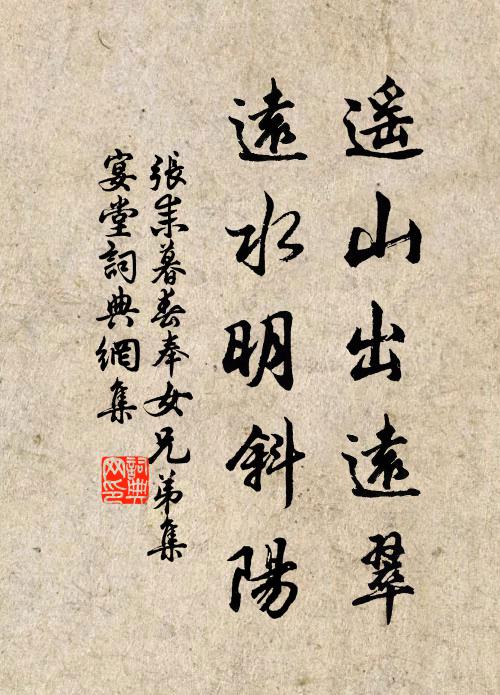 遥山出遠翠
遠水明斜陽
張耒暮春奉女兄弟集
宴堂詞典網集
詞典
网印